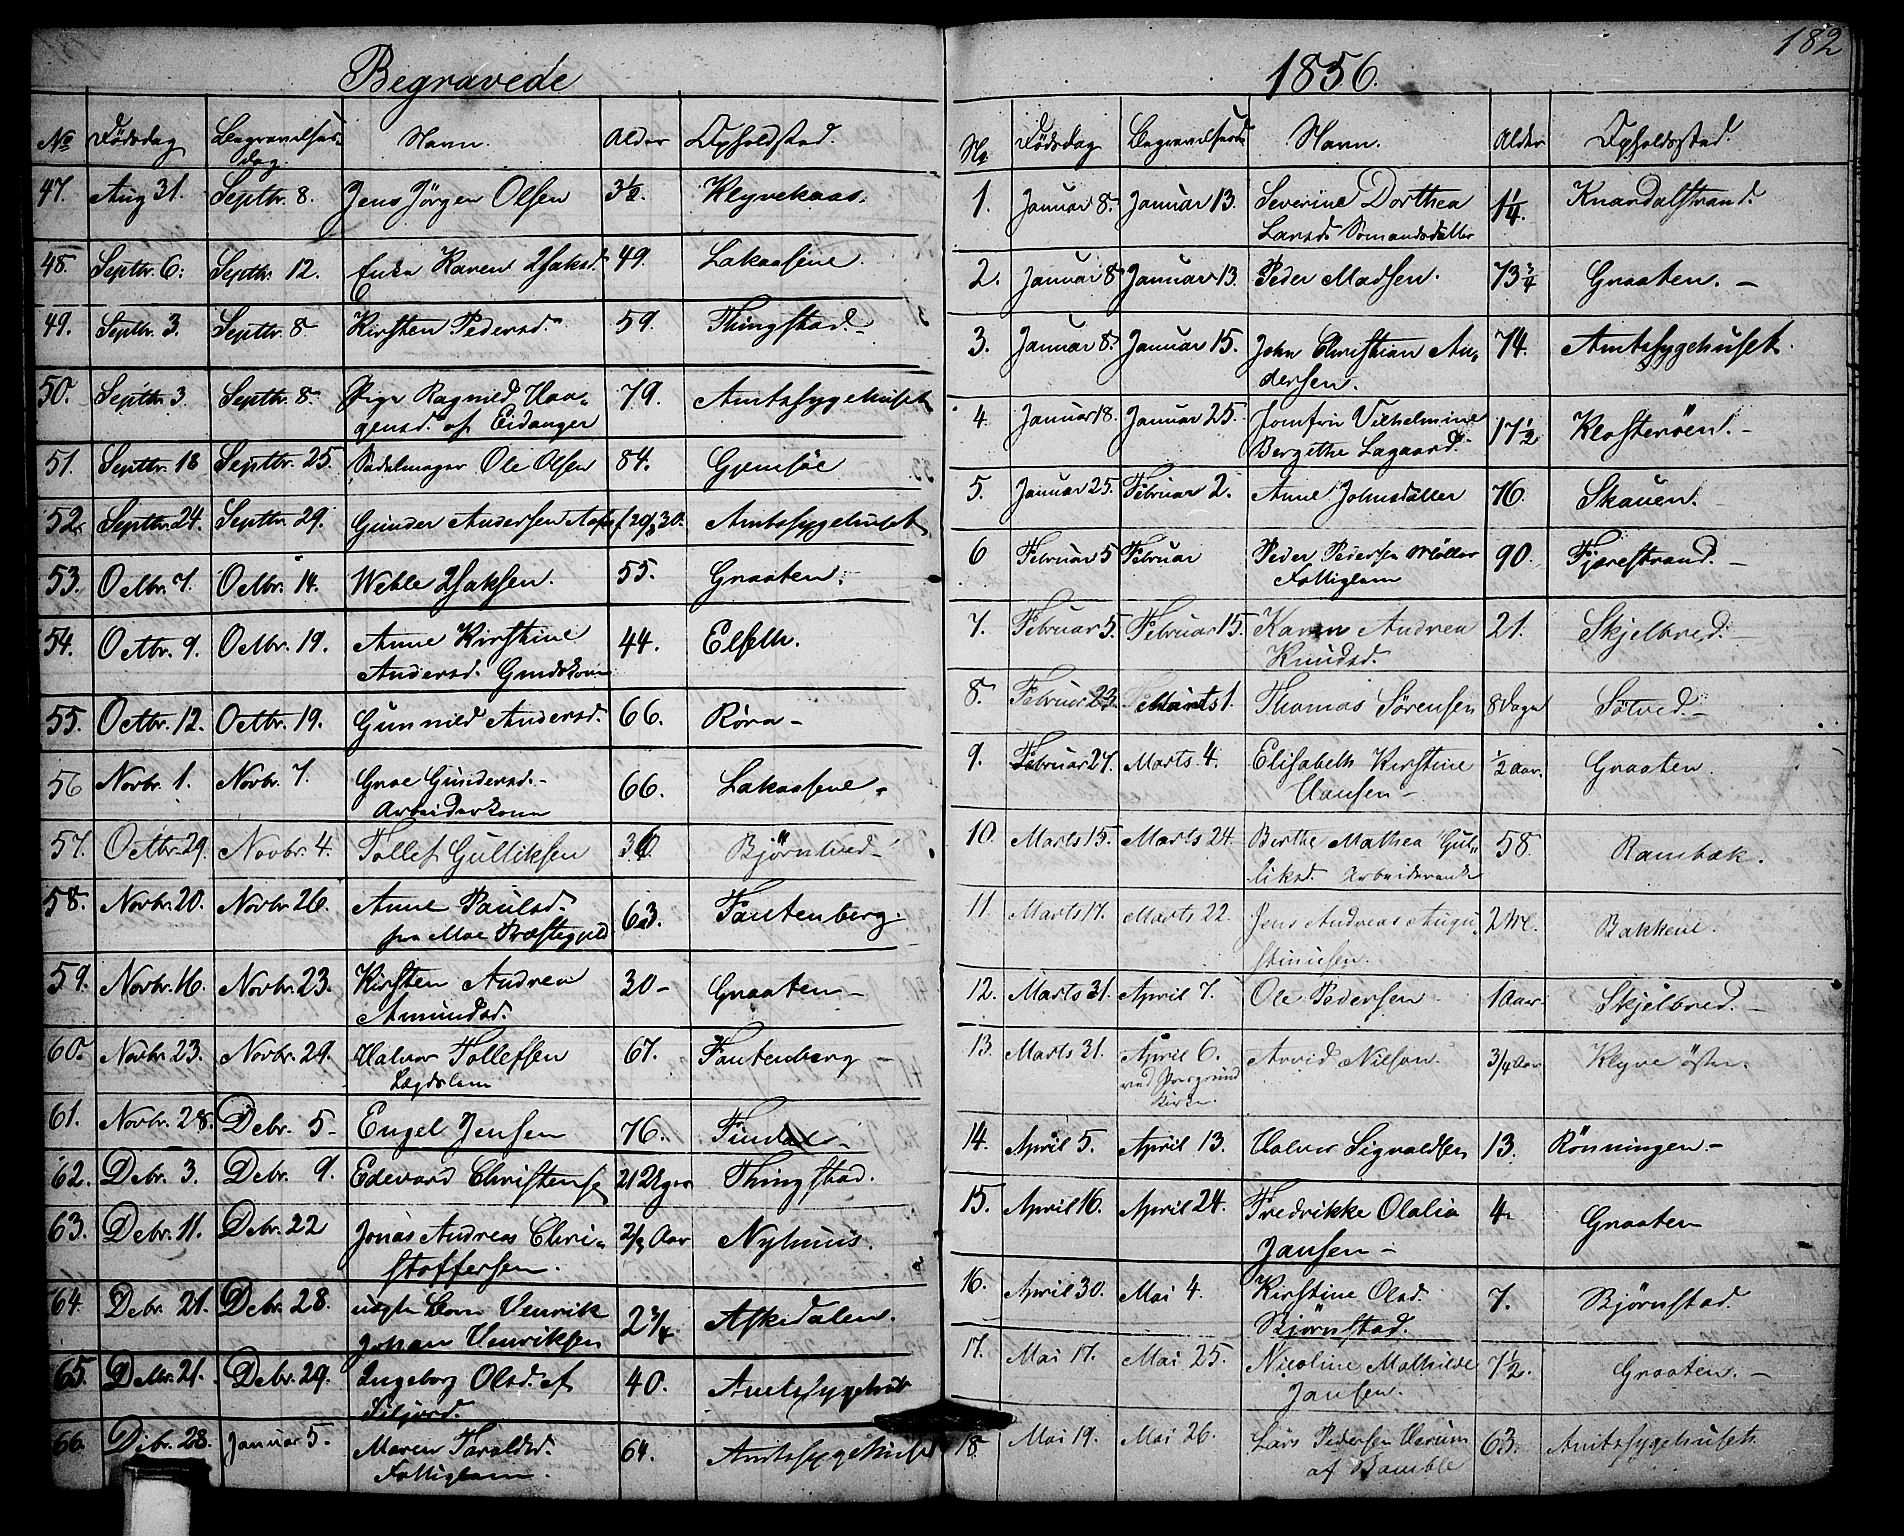 Begravede
No Dødsdag Begravelses- dag. Navn. Alder Opholdstad.
47. Aug 31. Septbr. 8. Jens Jörgen Olsen 3½. Klyvekaas.
48. Septbr. 6. Septbr. 12. Enke Karen Isaksd. 49. Lakaasene.
49. Septbr. 3. Septbr. 8 Kirsten Pedersd. 59. Thingstad.
50. Septbr. 3 Septbr. 8. Pige Ragnild Haa-
gensd. af Eidanger 79. Amtssygehuset
51. Septbr. 18 Septbr. 25. Sadelmager Ole Olsen 84. Gjemsöe
52. Septbr. 24. Septbr. 29. Gunder Andersen 30. Amtssygehuset
53. Octbr. 7. Octbr. 14. Wetle Isaksen. 55. Graaten.
54. Octbr. 9. Octbr. 19. Anne Kirstine
Andersd. Gmdskone 44. Elseth.
55. Octbr. 12. Octbr. 19. Gunnild Andersd. 66. Røra-
56 Novbr. 1. Novbr. 7. Groe Gundersd.-
Arbeiderkone 66. Lakaasene.
57. Octbr. 29. Novbr. 4. Tollef Gulliksen 30. Bjørntved-
58. Novbr. 20. Novbr. 26. Anne Paulsd.
fra Moe Præstegjeld 63. Fantenberg.
59. Novbr. 16. Novbr. 23. Kirsten Andrea
Amundsd. 30- Graaten-
60. Novbr. 23. Novbr. 29. Halvor Tollefsen
Lægdslem 67. Fantenberg -
61. Novbr. 28. Debr. 5- Engel Jensen 76. Findal-
62. Debr. 3. Debr. 9. Edevard Christensen 21 Uger Thingstad.
63. Debr. 11. Debr. 22 Jonas Andreas Chri-
stoffersen. 2/3 Aar Nyhuus.
64. Debr. 21. Debr. 28. uægte Barn Henrik
Johan Henriksen 2¾ Askedalen.
65. Debr. 21. Debr. 29. Ingeborg Olsd. af
Siljord. 40. Amtssygehus
66. Debr. 28. Januar 5. Maren Taraldsd.
Fattiglem. 64. Amtssygehuset
182
1856.
No. Dødsdag Begravelsesd. Navn. Alder Opholdsstad.
1. Januar 8. Januar 13. Severine Dorthea
Larsd. Sömandsdatter 1¼. Knardalstrand.
2. Januar 8 Januar 13. Peder Madsen. 73¾ Graaten. -
3. Januar 8. Januar 15. John Christian An-
dersen. 74. Amtssygehuset.
4 Januar 18. Januar 25. Jomfru Vilhelmine
Bergethe Aagaard. 17½ Klosterøen.-
5. Januar 25. Februar 2. Anne Johnsdatter 76. Skauen.
6 Februar 5 Februar Peder Pedersen Møller
Fattiglem 90. Fjærestrand. -
7. Februar 5. Februar 15. Karen Andrea
Knudsd. 21. Skjelbred.
8. Februar 23. Marts 1. Thomas Sørensen 8 Dage Søtved.-
9. Februar 27. Marts 4. Elisabeth Kirstine
Hansen- ½ Aar. Graaten.
10. Marts 15. Marts 24. Birthe Mathea Gul-
liksd. Arbeiderenke 58. Rambæk.
11. Marts 17. Marts 22. Jens Andreas Augu-
stinusen. 2 M. Bakkene.
12. Marts 31. April 7. Ole Pedersen 1 Aar. Skjelbred.-
13. Marts 31. April 6.
ved Porsgrund
Kirke. Arvid Nilsen. 3/4 Aar Klyve østre.
14. April 5. April 13. Halvor Sigvaldsen 13. Rönningen-
15. April 16. April 24. Fredrikke Olalia
Jansen- 4. Graaten
16. April 30. Mai 4. Kirstine Olsd.
Bjørnstad. 7. Bjørnstad.
17. Mai 17. Mai 25. Nicoline Mathilde
Jansen. 7½. Graaten. -
18 Mai 19. Mai 26. Lars Pedersen Herum
af Bamble 63. Amtssygehuset.